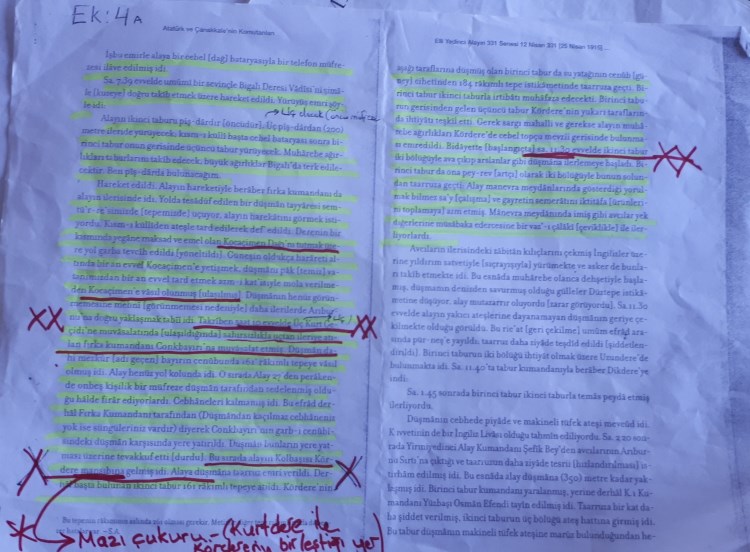 EK: 4A
Atatürk ve Çanakkale'nin Komutanları
İşbu emirle alaya bir cebel [dağ] bataryasıyla bir telefon müfre-
zesi ilâve edilmiş idi.
Sa. 7.39 evvelde umûmî bir sevinçle Bigalı Vâdisi'ni şimâ-
le [kuzeye] doğru takip etmek üzere hareket edildi. Yürüyüş emri şöy-
le idi.
Alayın ikinci taburu piş-dârdır [öncüdür]. Üç piş-dârdan (200)
metre ileride yürüyecek; kısm-ı küllî başta cebel bataryası sonra bi-
rinci tabur onun gerisinde üçüncü tabur yürüyecek. Muhârebe ağır-
lıkları taburlarını takib edecek, büyük ağırlıklar Bigalı'da terk edile-
cektir. Ben piş-dârda bulunacağım.
Hareket edildi. Alayın hareketiyle berâber fırka kumandanı da
alayın ilerisinde idi. Yolda tesâdüf edilen bir düşman tayyâresi sem-
tü'r-re'simizde [tepemizde] uçuyor, alayın harekâtını görmek isti-
yordu. Kısm-ı külliden ateşle tard edilerek def' edildi. Derenin bir
kısmında yegâne maksad ve emel olan Kocaçimen Dağı'nı tutmak üze-
re yol garba tevcîh edildi [yöneltildi]. Güneşin oldukça harâreti al-
tında bir an evvel Kocaçimen'e yetişmek, düşmânı pâk [temiz] va-
tanımızdan bir an evvel tard etmek azm-i kat'isiyle mola verilme-
den Kocaçimen'e vâsıl olunmuş [ulaşılmış]. Düşmânın henüz görün-
memesine mebnî [görünmemesi nedeniyle] daha derilerde Arıbur-
nu'na doğru yaklaşmak tabiî idi. Takriben saat 10 evvelde Üç Kurt Ge-
çidi'ne muvâsalatında [ulaşıldığında] sabırsızlıkla uçtan ileriye atı-
lan fırka kumandanı Conkbayırı'na muvâsalat etmiş. Düşmân da-
hi mezkûr [adı geçen] bayırın cenûbunda 161 râkımlı tepeye vâsıl
olmuş idi. Alay henüz yol kolunda idi. O sırada Alay 27'den perâken-
de onbeş kişilik bir müfreze düşmân tarafından tedelenmiş oldu-
ğu hâlde firâr ediyorlardı. Cebhâneleri kalmamış idi. Bu efrâd der-
hâl Fırka Kumandanı tarafından (Düşmândan kaçılmaz cebhâneniz
yok ise süngüleriniz vardır) diyerek Conkbayırı'nın garb-ı cenûbî-
sindeki düşmân karşısında yere yatırıldı. Düşmân bunların yere yat-
ması üzerine tevakkuf etti [durdu]. Bu sırada alayın Kolbaşısı Kör-
dere mansıbına gelmiş idi. Alaya düşmâna taarruz emri verildi. Der-
hâl başta bulunan ikinci tabur 161 râkımlı tepeye atıldı. Kördere'nin
Mazı çukuru - (Kurtdere ile
Körderenin birleştiği yer)
Elli Yedinci Alayın 331 Senesi 12 Nisan 331 [25 Nisan 1915]
aşağı taraflarına düşmüş olan birinci tabur da su yatağının cenûb [gü-
ney] cihetinden 184 râkımlı tepe istikâmetinde taarruza geçti. Bi-
rinci tabur ikinci taburla irtibâtı muhâfaza edecekti. Birinci tabu-
run gerisinden gelen üçüncü tabur Kördere'nin yukarı tarafların-
da ihtiyâtı teşkil etti. Gerek sargı mahalli ve gerekse alayın muhâ-
rebe ağırlıkları Kördere'de cebel topçu mevzii gerisinde bulunma-
sı emredildi. Bidâyette [başlangıçta] sa. 11.30 evvelde ikinci tabur
iki bölüğüyle ava çıkıp arslanlar gibi düşmâna ilerlemeye başladı. Bi-
rinci tabur da ona pey-rev [artçı] olarak iki bölüğüyle bunun solun-
dan taarruza geçti. Alay manevra meydânlarında gösterdiği yorul-
mak bilmez sa'y [çalışma] ve gayretin semerâtını iktitâfa [ürünleri-
ni toplamaya] azm etmiş. Mânevra meydânında imiş gibi avcılar yek
diğerlerine müsâbaka edercesine bir çâlâkî [çeviklikle] ile iler-
liyorlardı.
Avcıların ilerisindeki zâbitân kılıçlarını çekmiş İngilizler üze-
rine yıldırım satvetiyle [sıçrayışıyla] yürümekte ve asker de bunla-
rı takib etmekte idi. Bu esnâda muhârebe olanca dehşetiyle başla-
mış, düşmanın denizden savurmuş olduğu gülleler Düztepe istikâ-
metine düşüyor, alay mutazarrır oluyordu [zarar görüyordu]. Sa. 11.30
evvelde alayın yakıcı ateşlerine dayanamayan düşmânın geriye çe-
kilmekte olduğu görüldü. Bu ric'at [geri çekilme] umûm efrâd ara-
sında pür-neş'e yayıldı, taarruz daha ziyâde teşdîd edildi [şiddetlen-
dirildi]. Birinci taburun iki bölüğü ihtiyat olmak üzere Uzundere'de
bulunmakta idi. Sa. 11.40'ta tabur kumandanıyla berâber Dikdere'ye
indi.
Sa. 1.45 sonrada birinci tabur ikinci taburla temâs peydâ etmiş
ilerliyordu.
Düşmânın cebhede piyâde ve makineli tüfek ateşi mevcûd idi.
Kuvvetinin de bir İngiliz Livâsı olduğu tahmîn ediliyordu. Sa. 3.20 son-
rada Yirmiyedinci Alay Kumandanı Şefik Bey'den avcılarının Arıbur-
nu Sırtı'na çıktığı ve taarruzun daha ziyâde tesrîi [hızlandırılması] is-
tirhâm edilmiş idi. Bu esnâda alay düşmâna (350) metre kadar yak-
laşmış idi. Birinci tabur kumandanı yaralanmış, yerine derhâl K.1 Ku-
mandanı Yüzbaşı Osmân Efendi tayin edilmiş idi. Taarruza bir kat da-
ha şiddet verilmiş, ikinci taburun üç bölüğü ateş hattına girmiş idi.
Bu tabur düşmânın makineli tüfek ateşine mârûz bulunduğundan he-